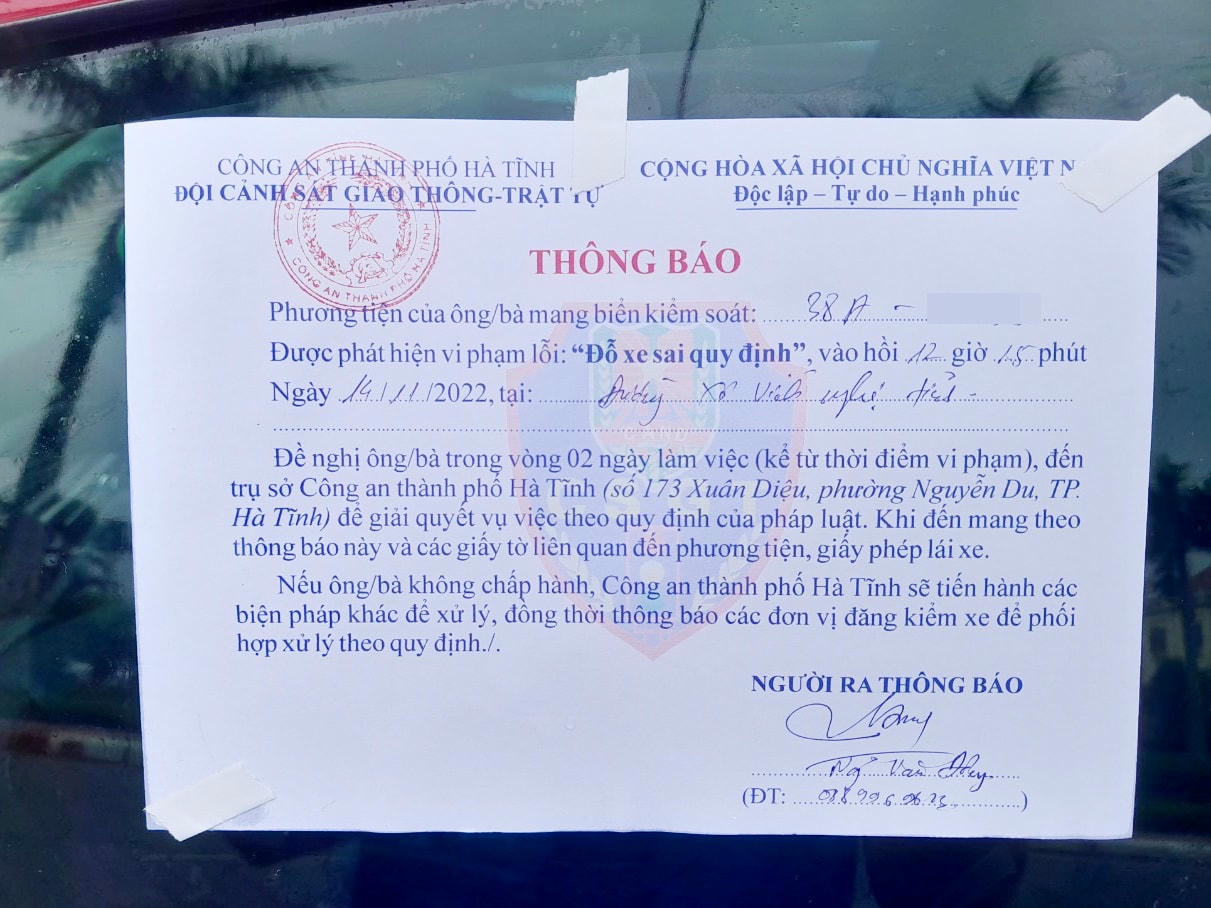 CÔNG AN THÀNH PHỐ HÀ TĨNH
ĐỘI CẢNH SÁT GIAO THÔNG-TRẬT TỰ
CỘNG HÒA XÃ HỘI CHỦ NGHĨA VIỆT
Độc lập – Tự do – Hạnh phúc
CÔNG AN THÀNH PHỐ HÀ TĨNH
THÔNG BÁO
Phương tiện của ông/bà mang biển kiểm soát: 38A -
Được phát hiện vi phạm lỗi: “Đỗ xe sai quy định”, vào hồi 12 giờ 15 phút
Ngày 14/11/2022, tại: Đường Xô Viết Nghệ Tĩnh -
CAND
Đề nghị ông/bà trong vòng 02 ngày làm việc (kể từ thời điểm vi phạm), đến
trụ sở Công an thành phố Hà Tĩnh (số 173 Xuân Diệu, phường Nguyễn Du, TP.
Hà Tĩnh) để giải quyết vụ việc theo quy định của pháp luật. Khi đến mang theo
thông báo này và các giấy tờ liên quan đến phương tiện, giấy phép lái xe.
Nếu ông/bà không chấp hành, Công an thành phố Hà Tĩnh sẽ tiến hành các
biện pháp khác để xử lý, đồng thời thông báo các đơn vị đăng kiểm xe để phối
hợp xử lý theo quy định./.
NGƯỜI RA THÔNG BÁO
Văn
(ĐT: )